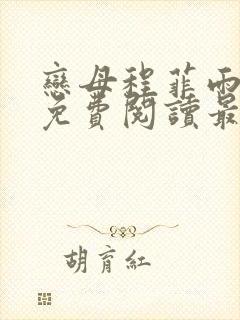 戀母程菲雨
免費閱讀最
胡育紅